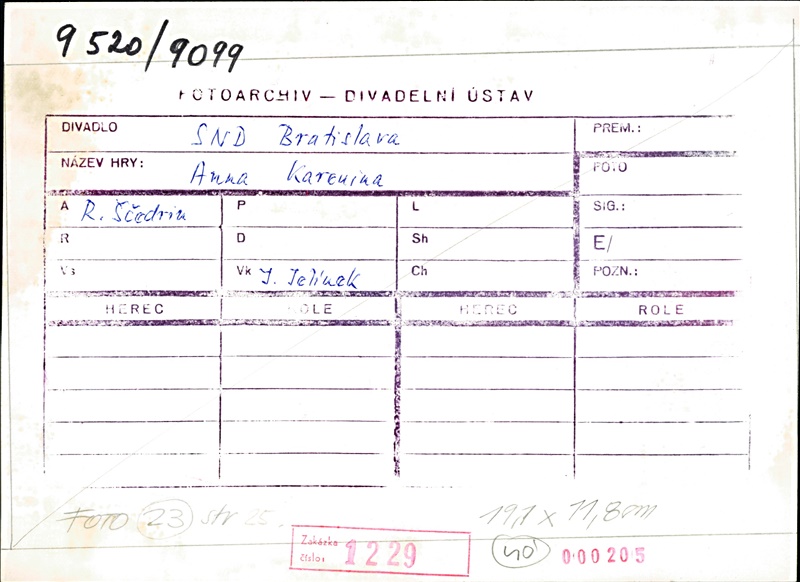 9520/9099
FOTOARCHIV — DIVADELNÍ ÚSTAV
DIVADLO SND Bratislava PREM.:
NÁZEV HRY: Anna Karenina FOTO
A R. Ščedrin P L SIG.:
R D Sh E/
Vs Vk J. Jelínek Ch POZN.:
HEREC ROLE HEREC ROLE
FOTO 23 str 25.
19,1 x 11,8cm
Zakázka číslo: 1229
40
000205